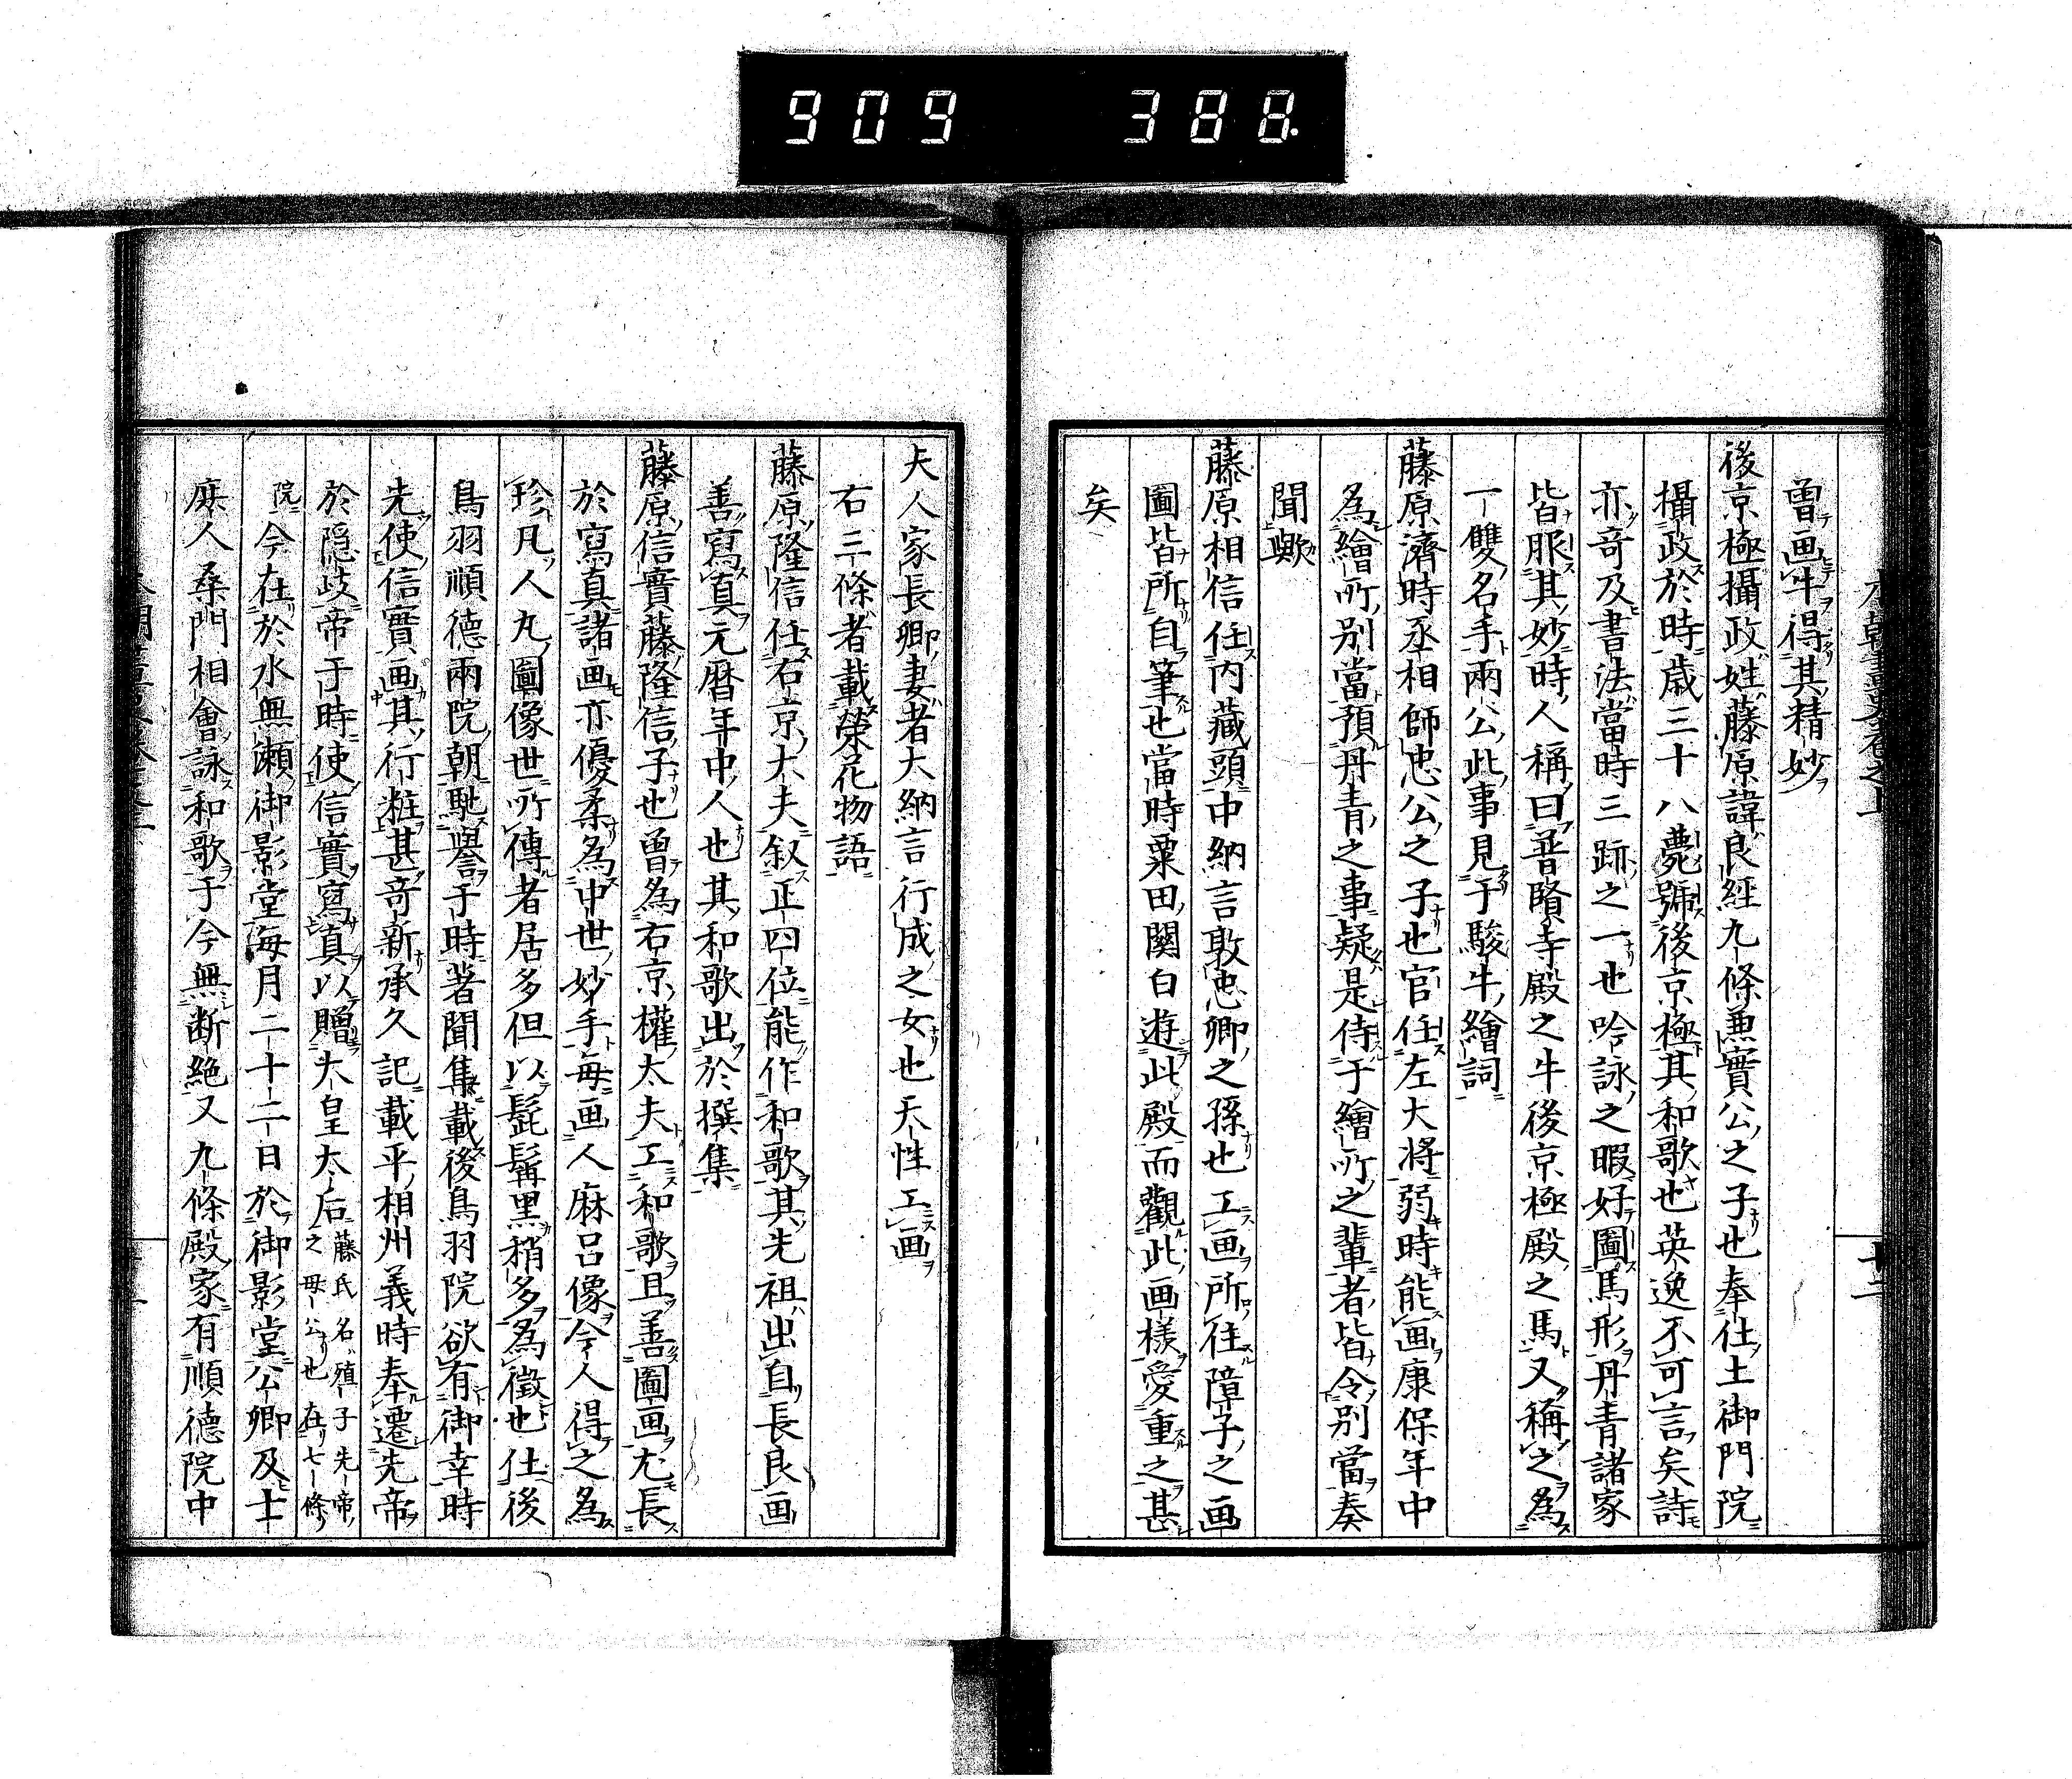 909 388.
曽画牛得其精妙
後京極攝政姓藤原諱良經九條兼實公之子也奉仕土御門院
攝政於時歳三十八薨號後京極其和歌也英逸不可言矣詩
亦竒及書法當時三跡之一也吟詠之暇好圖馬形丹青諸家
皆服其妙時人稱曰普賢寺殿之牛後京極殿之馬又稱之為
一雙名手兩公此事見于駿牛繪詞
藤原濟時丞相師忠公之子也官任左大将弱時能画康保年中
為繪所別當預丹青之事疑是侍于繪所之輩者皆令別當奏
聞歟
藤原相信任内藏頭中納言敦忠卿之孫也工画所住障子之画
圖皆所自筆也當時粟田關白遊此殿而觀此画樣愛重之甚
矣
夫人家長卿妻者大納言行成之女也天性工画
右三條者載榮花物語
藤原隆信任右京大夫叙正四位能作和歌其先祖出自長良画
善寫真元暦年中人也其和歌出於撰集
藤原信實藤隆信子也曽為右京權太夫工和歌且善圖画尤長
於寫真諸画亦優柔為中世妙手毎画人麻呂像今人得之為
珍凡人丸圖像世所傳者居多但以髭髯黒稍多為徴也仕後
鳥羽順徳兩院朝馳譽于時著聞集載後鳥羽院欲有御幸時
先使信實画其行粧甚竒新承久記載平相州義時奉遷先帝
於隠歧帝于時使信實寫真以贈夫皇太后藤氏名殖子先帝之母公也在七條
院今在於水無瀬御影堂毎月二十二日於御影堂公卿及士
庶人桑門相會詠和歌于今無断絶又九條殿家有順徳院中